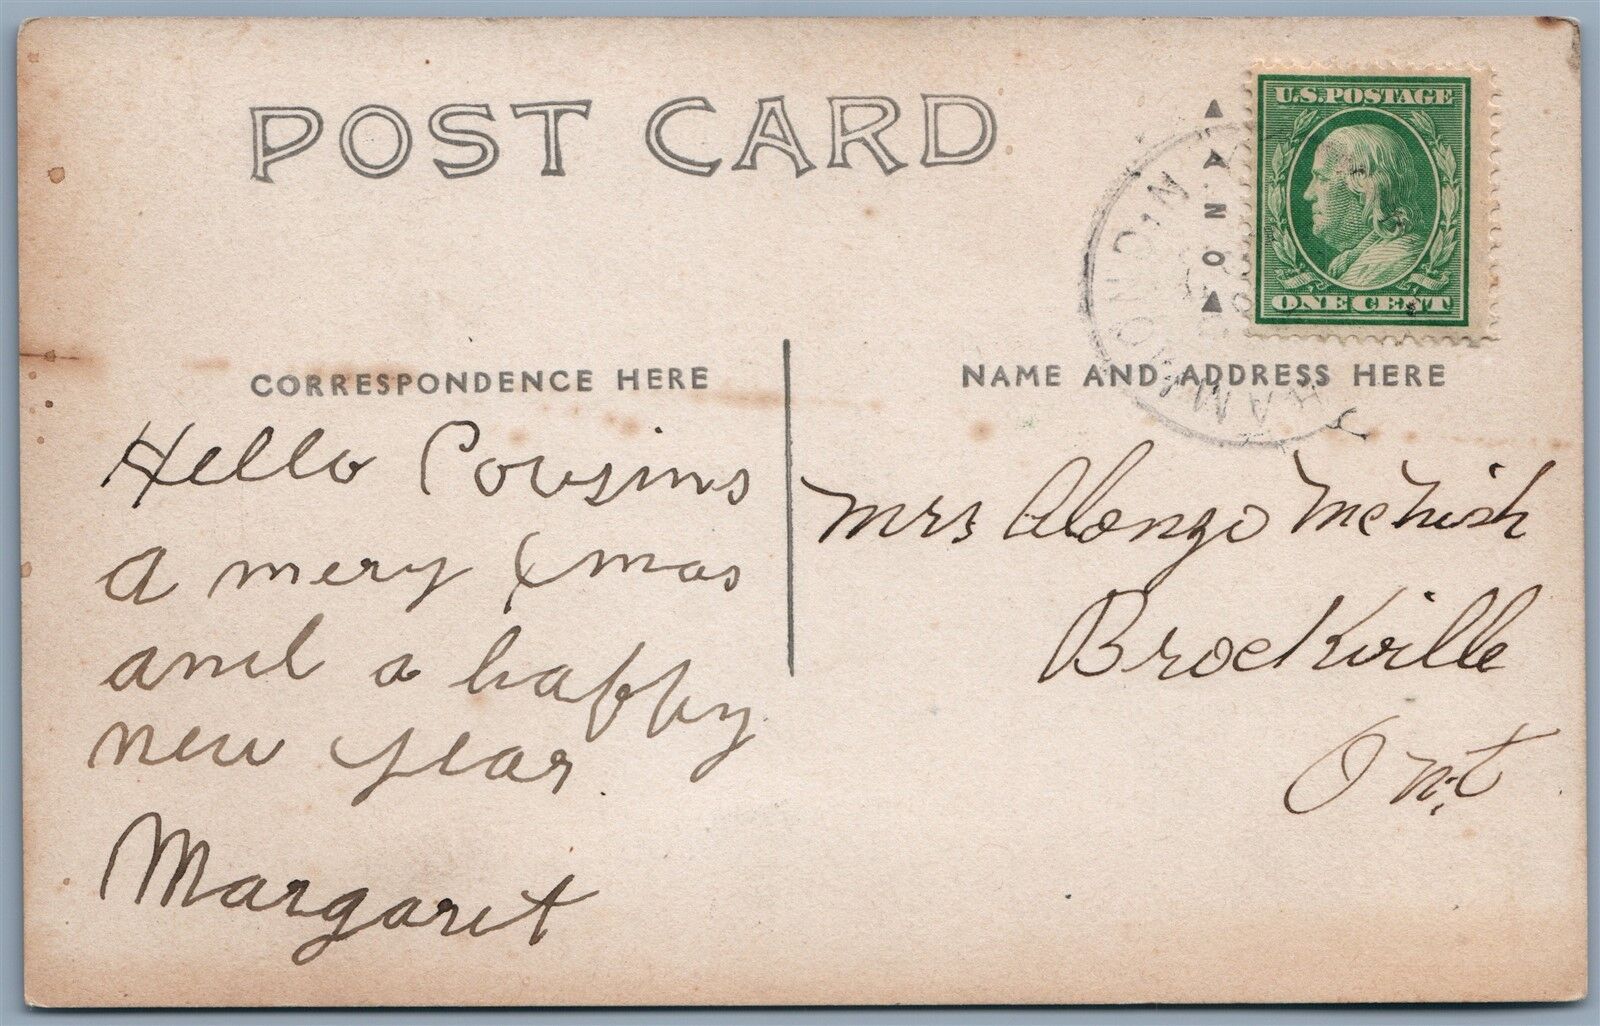 POST CARD
U.S. POSTAGE
ONE CENT
HAMMOND IN
CORRESPONDENCE HERE
NAME AND ADDRESS HERE
Hello Cousins
a mery Xmas
and a happy
new year.
Margaret
Mrs Alonzo McNish
Brockville
Ont